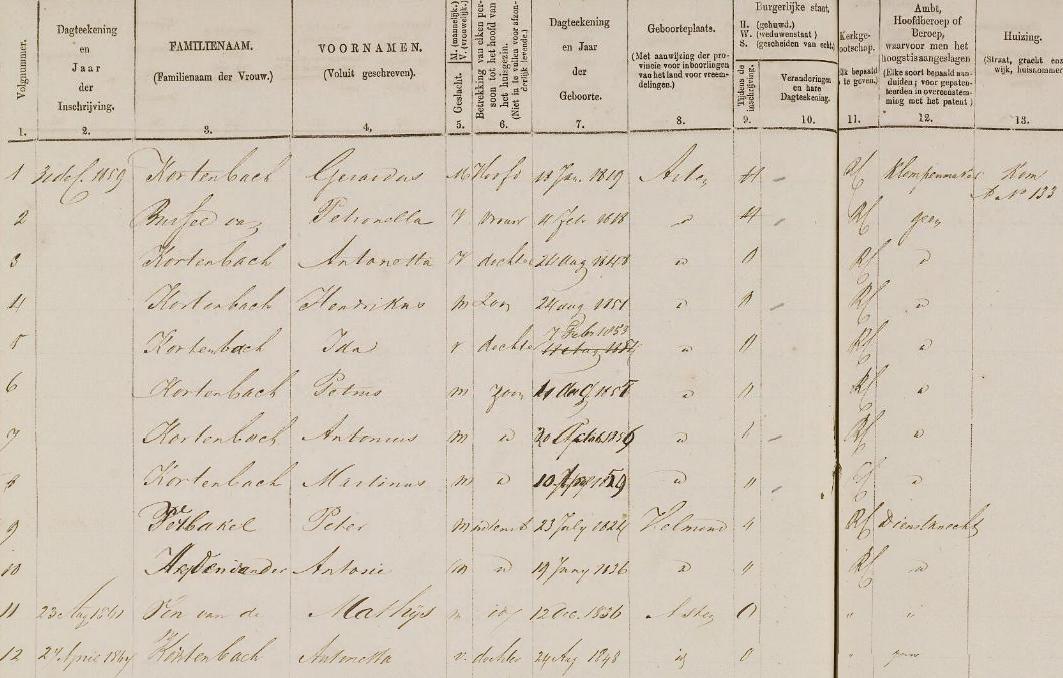 Volgnummer.
Dagteekening en Jaar der Inschrijving.
FAMILIENAAM.
(Familienaam der Vrouw.)
VOORNAMEN.
(Voluit geschreven).
Geslacht. M. (mannelijk.) V. (vrouwelijk.)
Betrekking van elken persoon tot het hoofd van het huisgezin. (Niet in te vullen voor afzonderlijk levende.)
Dagteekening en Jaar der Geboorte.
Geboorteplaats.
(Met aanwijzing der provincie voor inboorlingen van het land voor vreemdelingen.)
Burgerlijke staat,
H. (gehuwd.)
W. (weduwenstaat)
S. (gescheiden van echt)
Tijdens de inschrijving.
Veranderingen en hare Dagteekening.
Kerkgenootschap.
Ambt, Hoofdberoep of Beroep, waarvoor men het hoogst is aangeslagen
(Elke soort bepaald aanduiden; voor gepatenteerden in overeenstemming met het patent)
Huizing.
(Straat, gracht enz. wijk, huisnommer
1. 2. 3. 4. 5. 6. 7. 8. 9. 10. 11. 12. 13.
1 1859 Kortenbach Gerardus M Hoofd 18 Jan. 1819 Asten H RC Klompenmaker Kom A No 133
2 Bussel van Petronella V vrouw 11 Feb 1818 " H RC geen
3 Kortenbach Antonetta V dochter 24 aug 1848 " O RC "
4 Kortenbach Hendrikus m Zoon 24 aug 1851 " RC "
5 Kortenbach Ida v dochter 7 Febr 1853 " RC "
6 Kortenbach Petrus m zoon " RC "
7 Kortenbach Antonius m " " RC "
8 Kortenbach Martinus m " "
9 Bakel Peter m 23 July Helmond RC Dienstknecht
10 Antonie m " 19 Juny 1836 " RC "
11 23 Aug 1861 van de Mathijs m 12 Dec. 1836 Asten O " "
12 27 April Kortenbach Antonetta v. dochter 24 Aug 1848 id O " geen